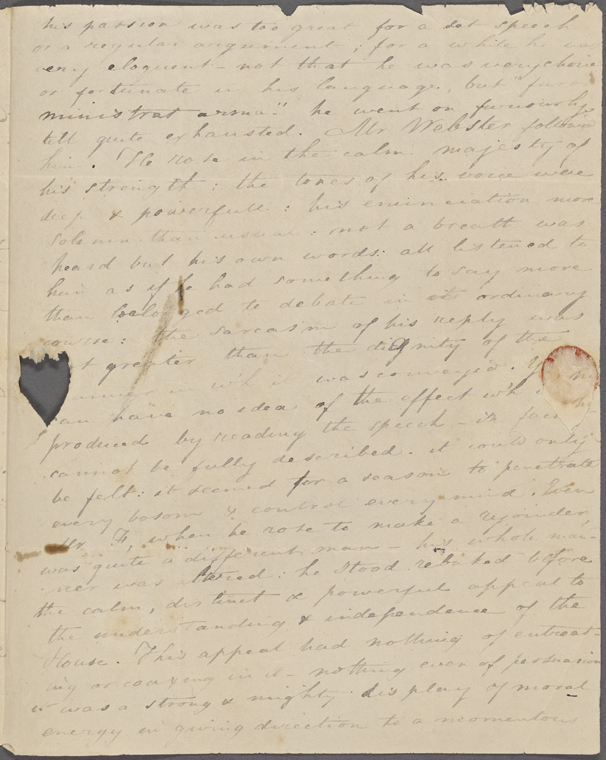 his passion was too great for a set speech
or a regular argument; for a while he was
very eloquent – not that he was very choice
or fortunate in his language, but "furor
ministrat arma." he went on furiously
till quite exhausted. Mr. Webster followed
him. He rose in the calm majesty of
his strength: the tones of his voice were
deep & powerfull: his enunciation more
solemn than usual: not a breath was
heard but his own words: all listened to
him as if he had something to say more
than belonged to debate in its ordinary
course: the sarcasm of his reply was
greater than the dignity of the
manner in which was conveyed. You
can have no idea of the effect
produced by reading the speech – in fact
cannot be fully described. it could only
be felt: it seemed for a season to penetrate
every bosom & control every mind. Even
Mr. F, when he rose to make a rejoinder
was quite a different man – his whole man-
ner was altered: he stood rebuked before
the calm, distinct & powerful appeal to
the understanding & independence of the
House. This appeal had nothing of entreat-
ing or coaxing in it – nothing even of persuasion
it was a strong & mighty display of moral
energy in giving direction to a momentous